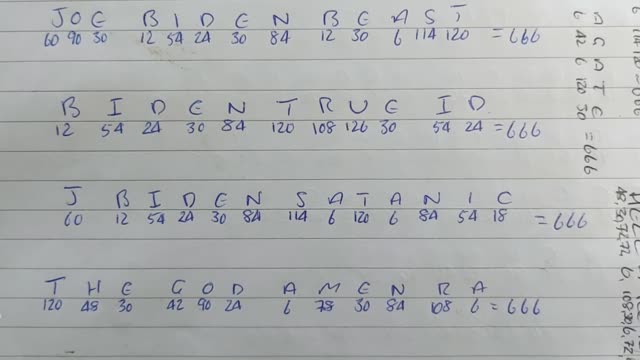 JOE BIDEN BEAST
60 90 30 12 54 24 30 84 12 30 6 114 120 = 666
BIDEN TRUE ID
12 54 24 30 84 120 108 126 30 54 24 = 666
J BIDEN SATANIC
60 12 54 24 30 84 114 6 120 6 84 54 18 = 666
THE GOD AMEN RA
120 48 30 42 90 24 6 78 30 84 108 6 = 666
6 42 6 120 30 = 666